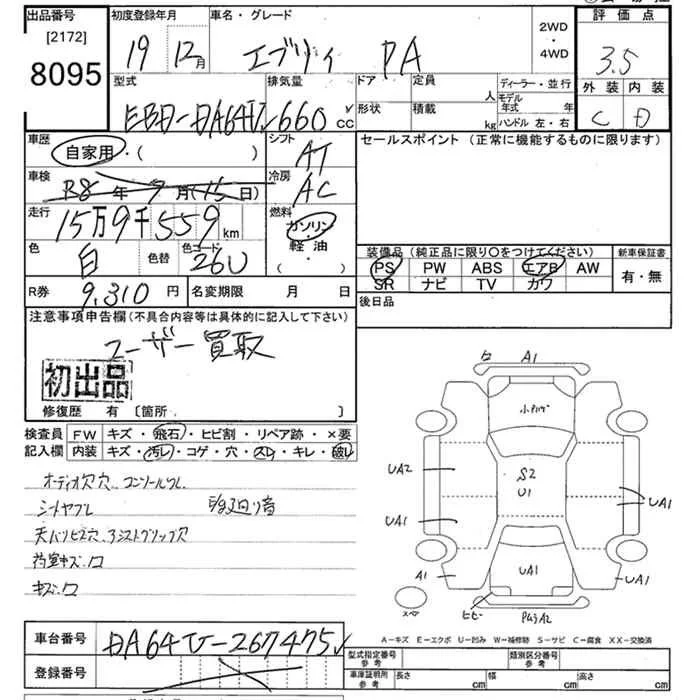 出品番号 初度登録年月 車名・グレード 2WD・4WD 評価点
[2172]
8095
19 12月 エブリィ PA 3.5
型式 排気量 ドア 定員 人 ディーラー・並行
形状 積載 kg モデル年式 年
ハンドル 左・右
外装 内装
EBD-DA64V 660cc C D
車歴 自家用・( ) シフト AT
セールスポイント (正常に機能するものに限ります)
車検 R8年 9月(15日) 冷房 AC
走行 15万9千559km 燃料 ガソリン・軽油・( )
色 白 色替 色コード 26U
装備品(純正品に限り〇をつけてください) 新車保証書
PS PW ABS エアB AW 有・無
SR ナビ TV カワ
R券 9,310円 名変期限 月 日 後日品
注意事項申告欄(不具合内容等は具体的に記入して下さい)
ユーザー買取
初出品
修復歴 有 〔箇所 〕
検査員 FW キズ・飛石・ヒビ割・リペア跡・×要
記入欄 内装 キズ・汚レ・コゲ・穴・スレ・キレ・破レ
オーディオ欠穴、コンソールワレ
シートヤブレ
天バリビス穴、アシストグリップ穴
荷室キズ・凹
キズ・凹
A1
小
S2
U1
UA2
UA1
UA1
UA1
A1
UA1
UA1
ヒビ
A2
A-キズ E-エクボ U-凹み W-補修跡 S-サビ C-腐食 XX-交換済
車台番号 DA64V-267475
登録番号
型式指定番号 参考 類別区分番号 参考
車庫証明所 参考 長さ cm 幅 cm 高さ cm